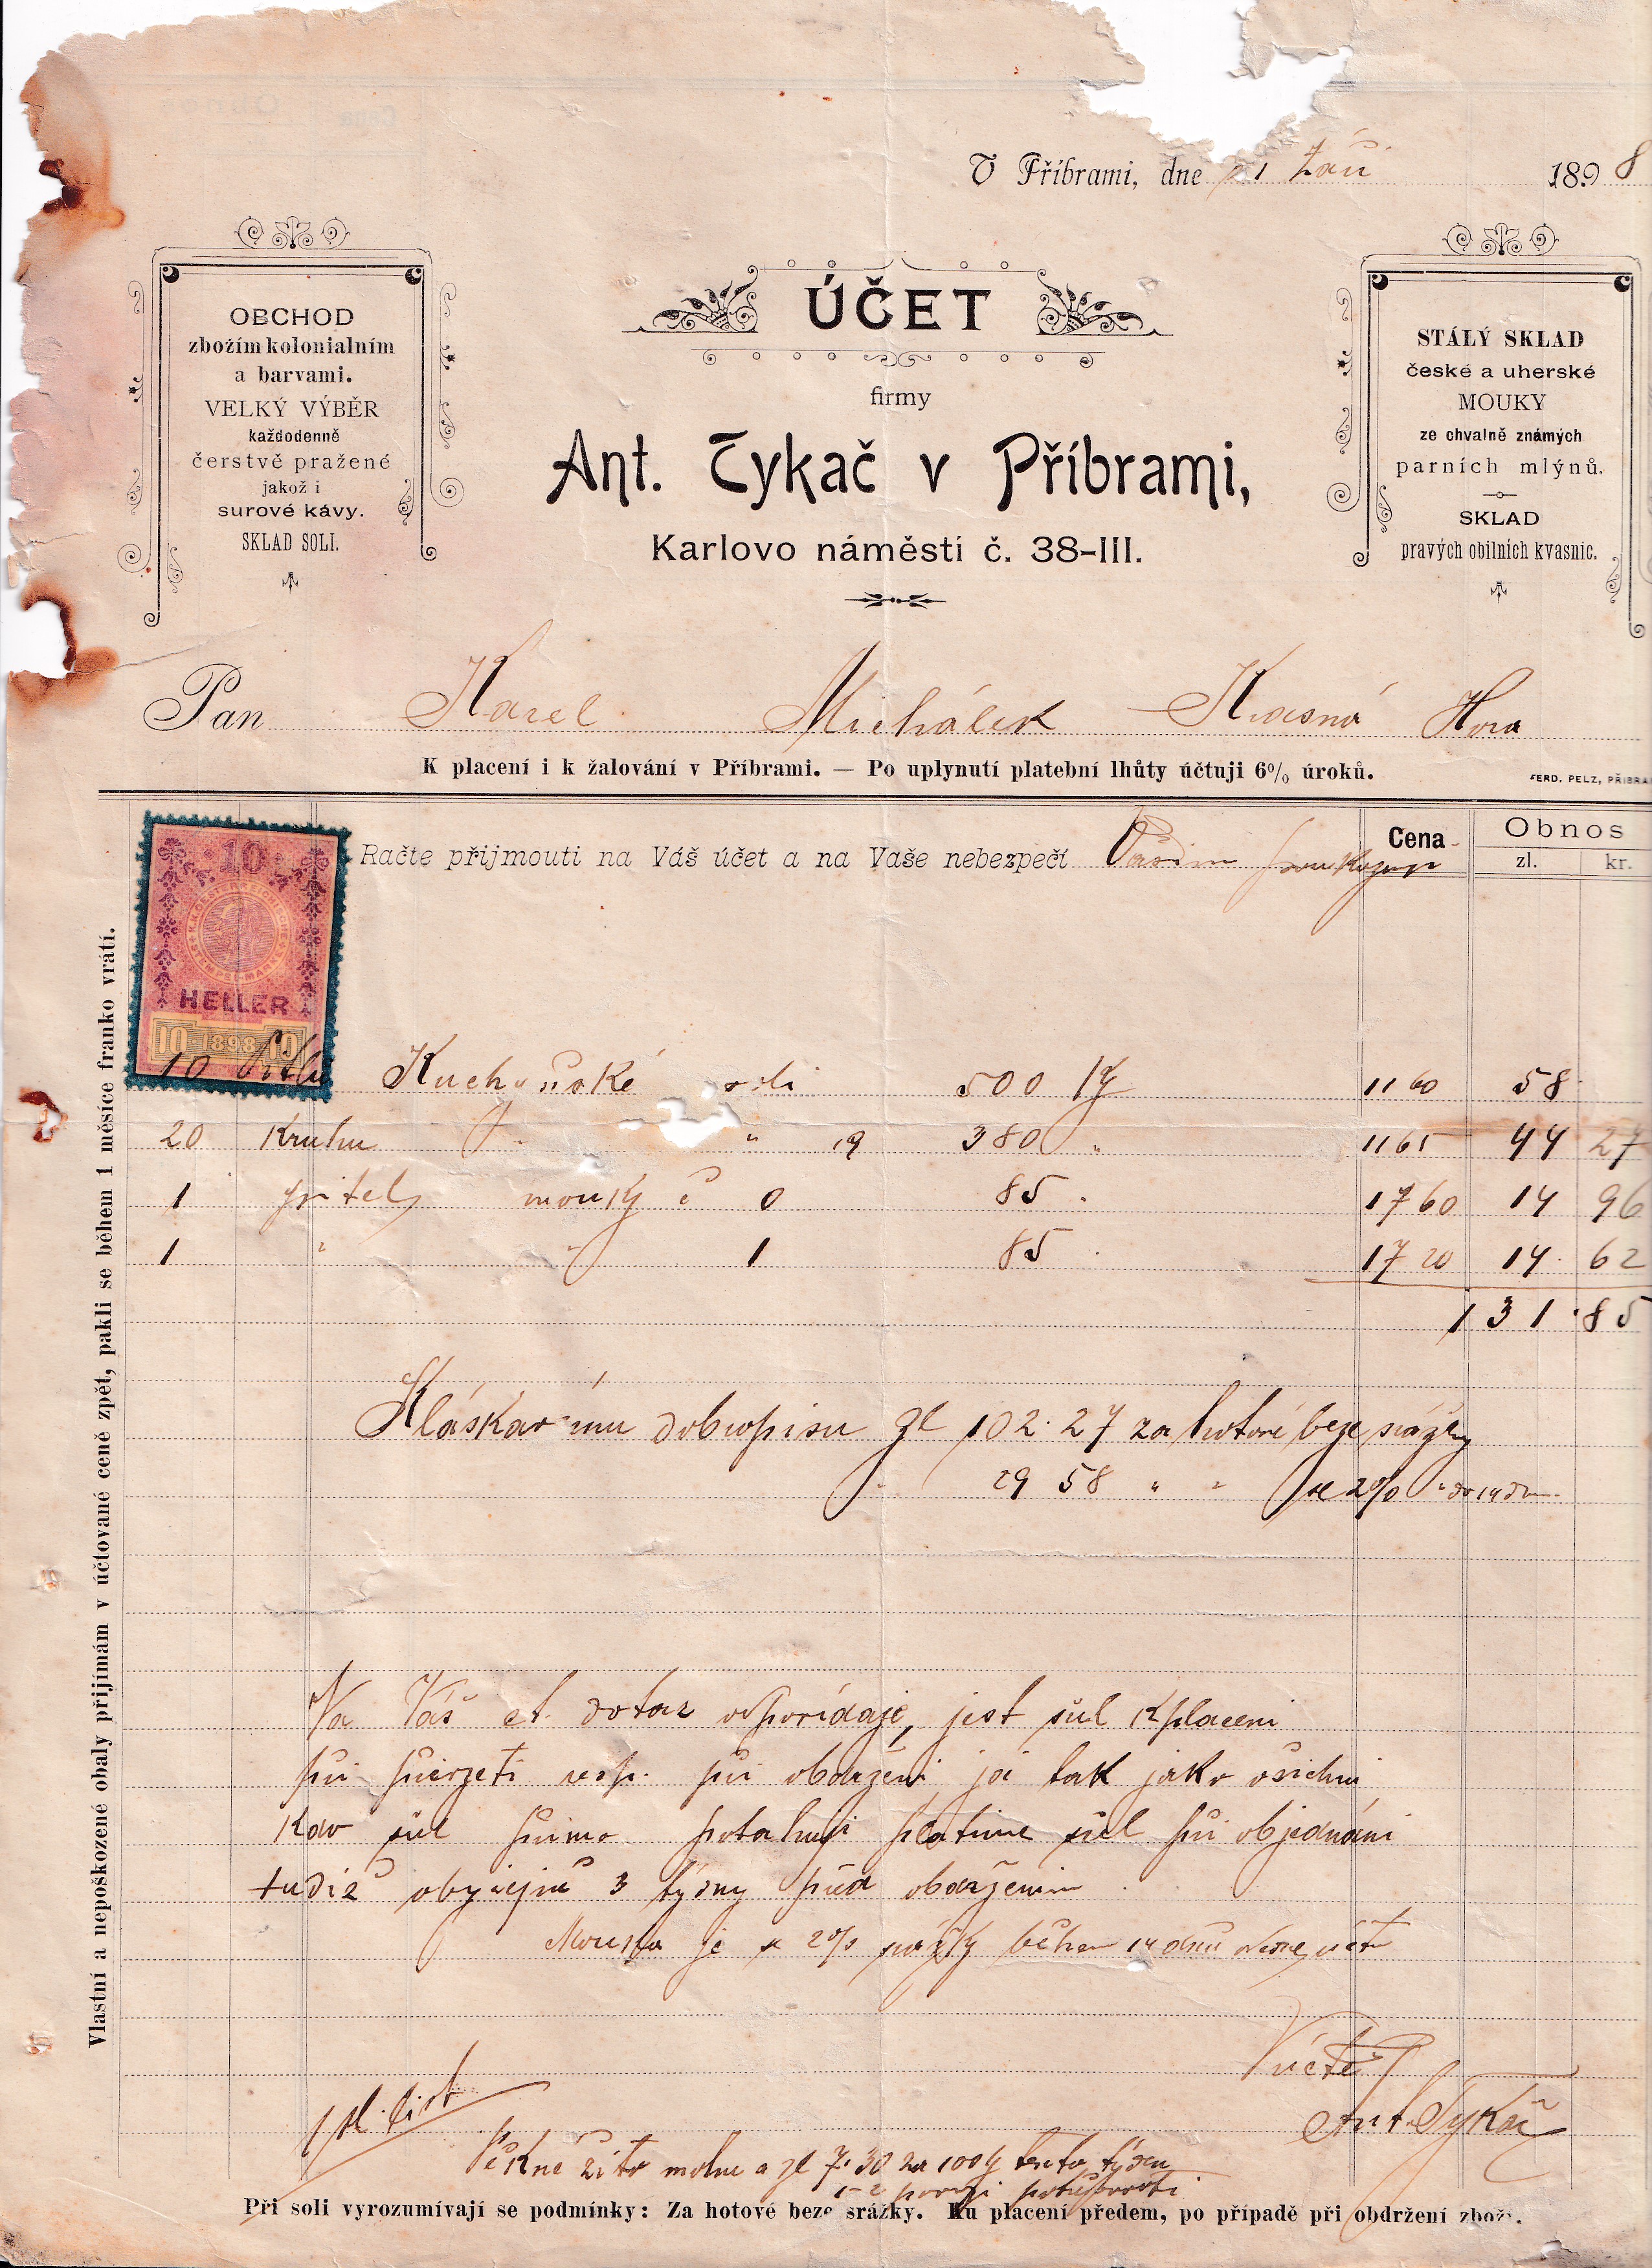 V Příbrami, dne 1 Září 1898
ÚČET
firmy
Ant. Tykač v Příbrami,
Karlovo náměstí č. 38-III.
OBCHOD
zbožím kolonialním
a barvami.
VELKÝ VÝBĚR
každodenně
čerstvě pražené
jakož i
surové kávy.
SKLAD SOLI.
STÁLÝ SKLAD
české a uherské
MOUKY
ze chvalně známých
parních mlýnů.
SKLAD
pravých obilních kvasnic.
Pan Karel Michálek Krásná Hora
K placení i k žalování v Příbrami. — Po uplynutí platební lhůty účtuji 6% úroků.
FERD. PELZ, PŘIBRA
Račte přijmouti na Váš účet a na Vaše nebezpečí
Cena Obnos
zl. kr.
10
HELLER
10 1898 10
10 Pytlů Kuchyňské soli 500 kg 11 60 58
20 Kruhu " 19 380 " 11 65 44 27
1 pytel mouky č 0 85 " 17 60 14 96
1 " " 1 85 " 17 20 14 62
131 85
K láskavému dobropisu zl 102.27 za hotové beze srážky
" 29 58 " " se 2%
Na Váš ct. dotaz odpovídaje, jest sůl k placení
při převzetí resp. při obdržení já tak jako všichni
kdo sůl přímo potahují platíme sůl při objednání
tudíž obyčejně 3 týdny před obdržením
Mouka je s 2% srážky během 14 dnů
V úctě
Ant. Tykač
Pěkné žito mohu a zl 7.30 za 100 kg tento týden
Při soli vyrozumívají se podmínky: Za hotové beze srážky. Ku placení předem, po případě při obdržení zboží.
Vlastní a nepoškozené obaly přijímám v účtované ceně zpět, pakli se během 1 měsíce franko vrátí.